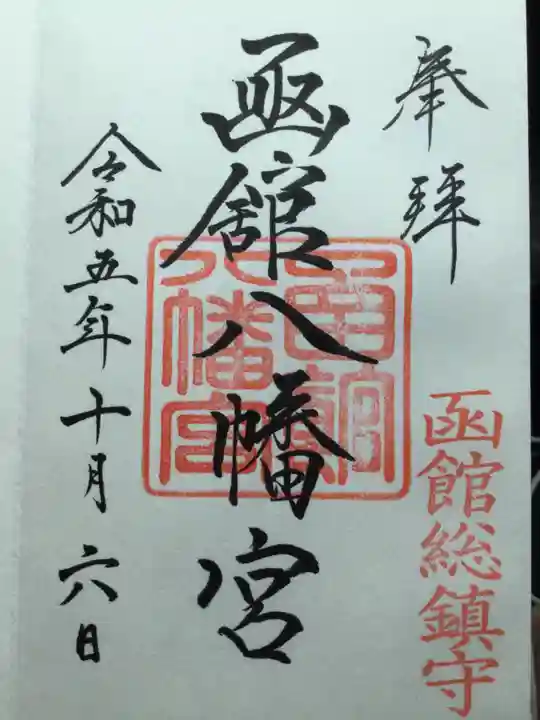 奉拝
函館総鎮守
函館八幡宮
函館八幡宮
令和五年十月六日